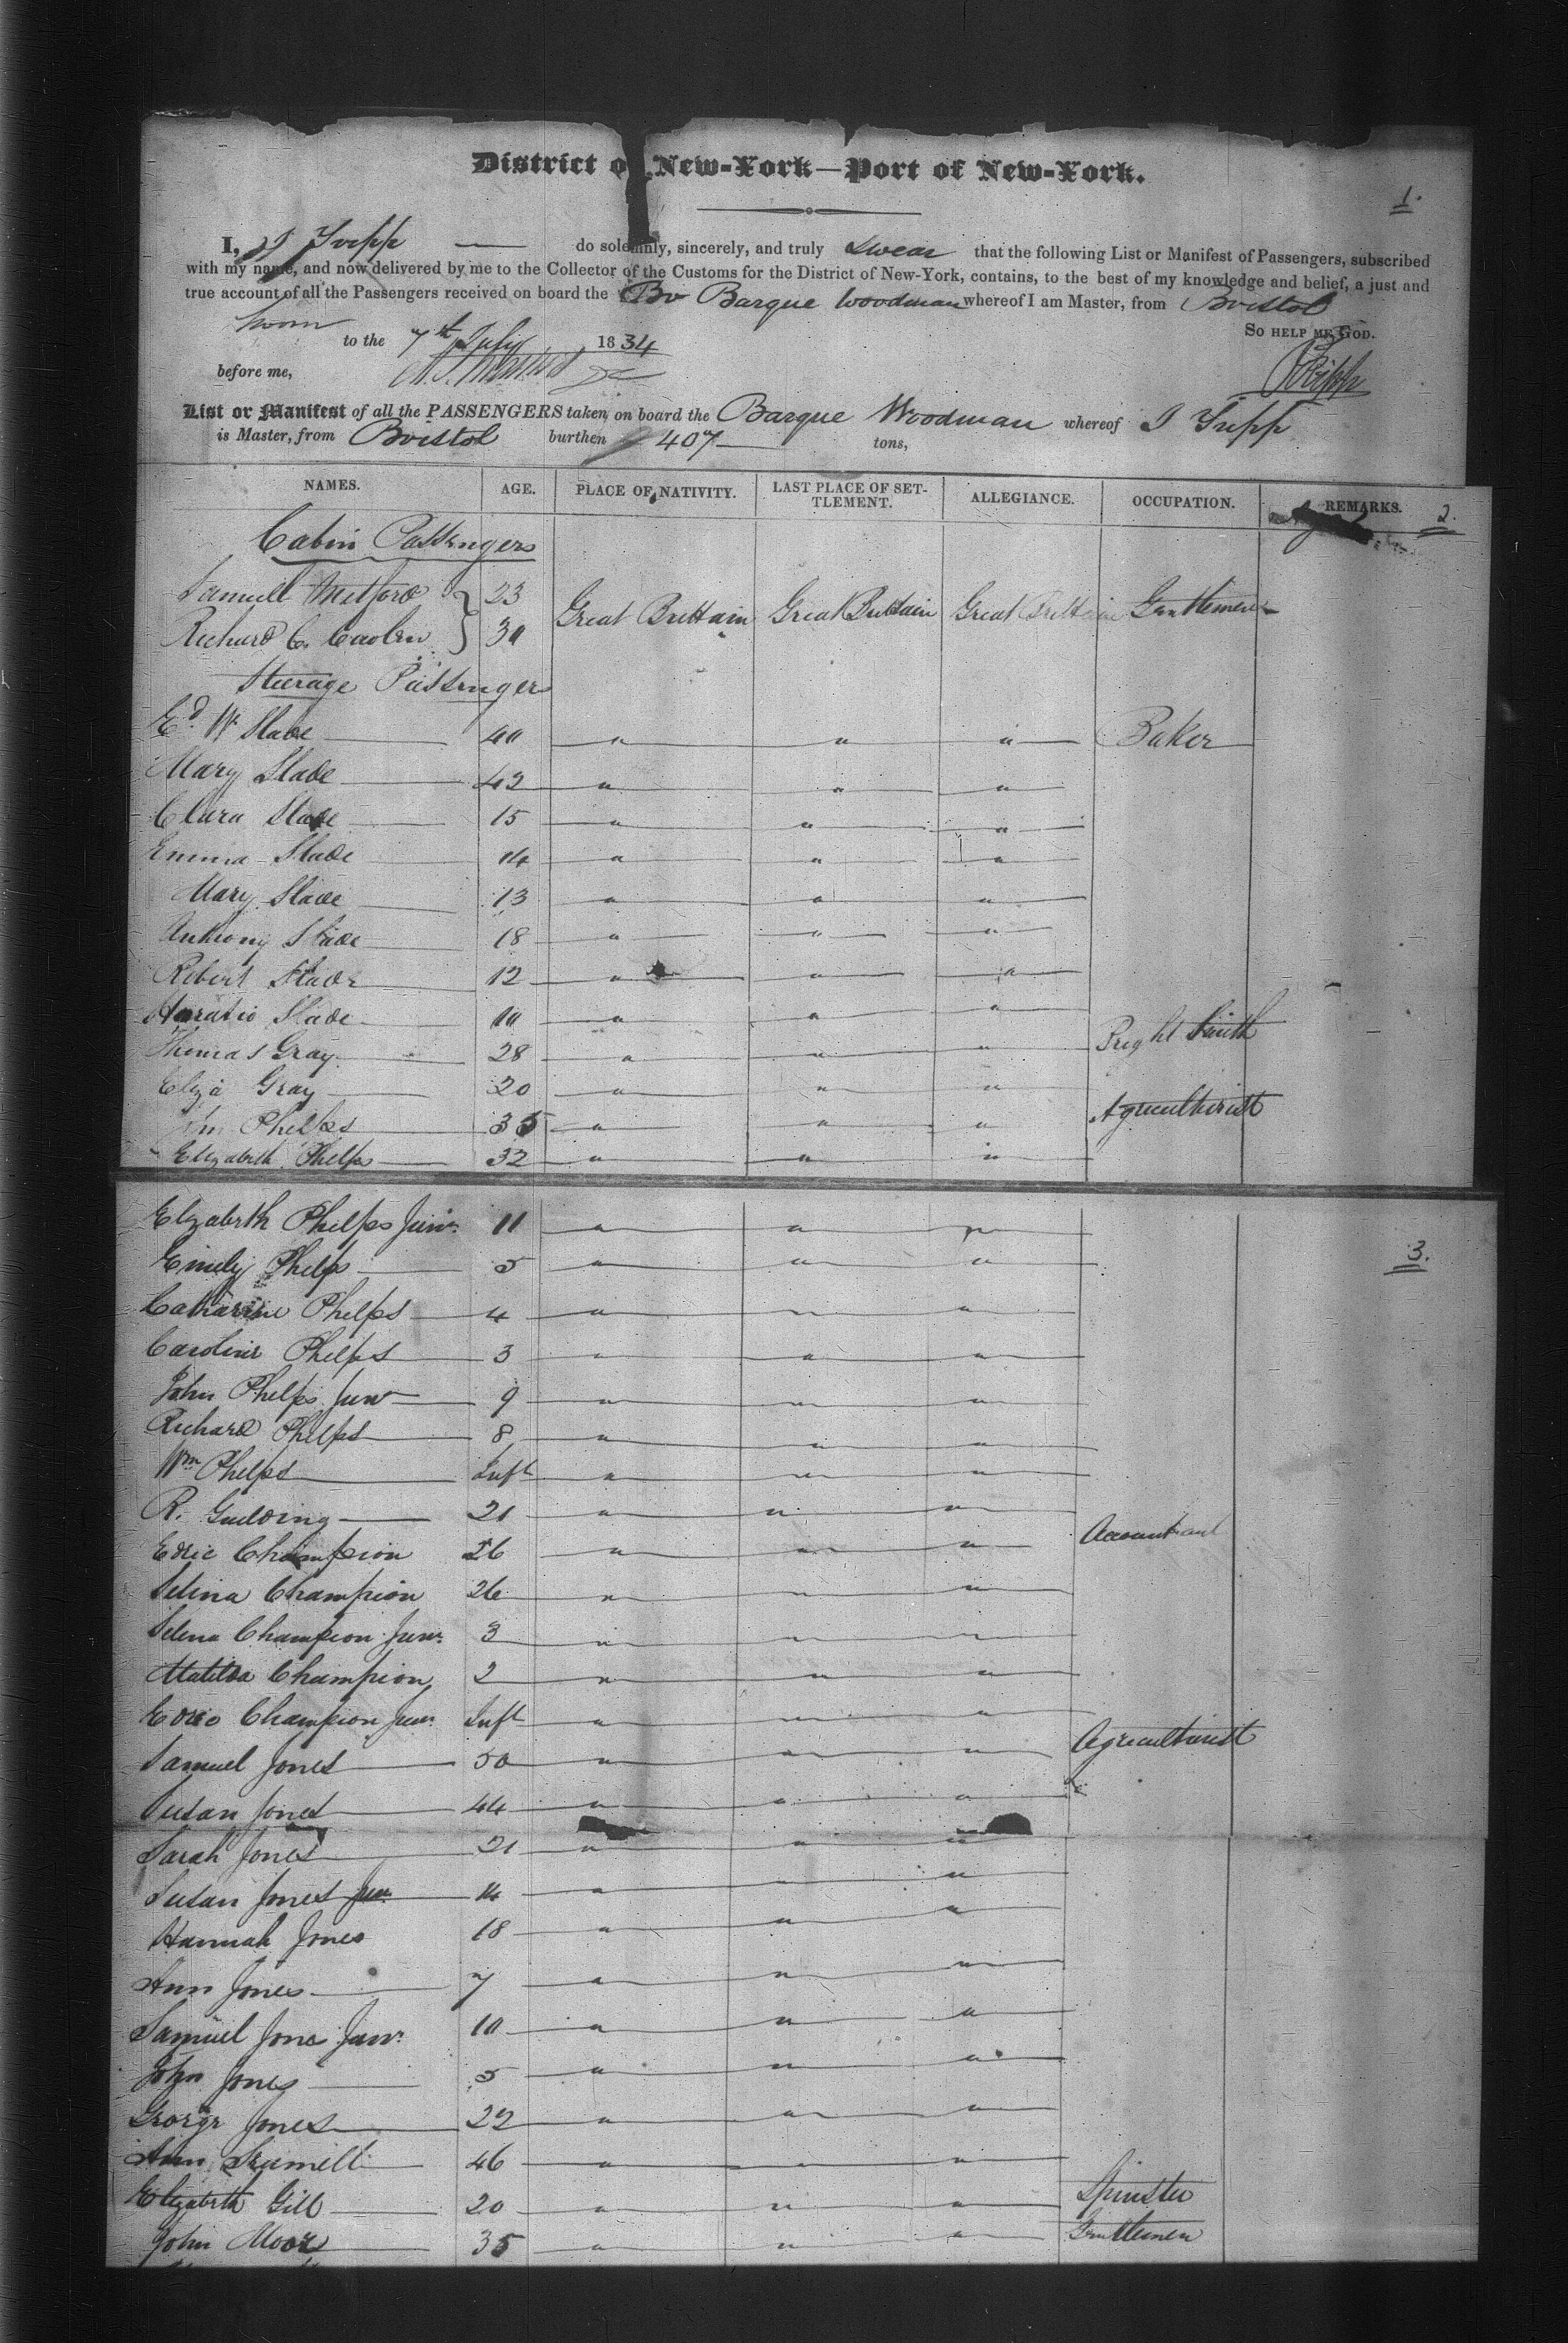 District of New-York—Port of New-York.
1.
I, J Tripp — do solemnly, sincerely, and truly Swear that the following List or Manifest of Passengers, subscribed
with my name, and now delivered by me to the Collector of the Customs for the District of New-York, contains, to the best of my knowledge and belief, a just and
true account of all the Passengers received on board the Br Barque Woodman whereof I am Master, from Bristol
Sworn to the 7th July 1834 So help me God.
before me,
JTripp
List or Manifest of all the PASSENGERS taken on board the Barque Woodman whereof J Tripp
is Master, from Bristol burthen 407 — tons,
NAMES. AGE. PLACE OF NATIVITY. LAST PLACE OF SETTLEMENT. ALLEGIANCE. OCCUPATION. REMARKS. 2.
Cabin Passengers
Samuell Mitford 23
Great Brittain Great Brittain Great Brittain Gentlemen
Richard C. 30
Steerage Passengers
Ed. W Slade 40 " " " Baker
Mary Slade 42 " " "
Clara Slade 15 " " "
Emma Slade 14 " " "
Mary Slade 13 " " "
Anthony Slade 18 " " "
Robert Slade 12 " " "
Horatio Slade 10 " " "
Thomas Gray 28 " " " Smith
Eliza Gray 20 " " "
Phelps 35 " " " Agriculturist
Elizabeth Phelps 32 " " "
Elizabeth Phelps Junr. 11 " " "
3.
Emily Phelps 5 " " "
Catharine Phelps 4 " " "
Caroline Phelps 3 " " "
John Phelps Junr 9 " " "
Richard Phelps 8 " " "
Wm Phelps Inft " " "
R. Guilding 21 " " "
Edric Champion 26 " " " Accountant
Selina Champion 26 " " "
Selena Champion Junr. 3 " " "
Matilda Champion 2 " " "
Edric Champion Junr. Inft " " "
Samuel Jones 50 " " " Agriculturist
Susan Jones 44 " " "
Sarah Jones 21 " " "
Susan Jones Junr. 14 " " "
Hannah Jones 18 " " "
Ann Jones 7 " " "
Samuel Jone Junr. 10 " " "
John Jones 5 " " "
George Jones 22 " " "
Ann 46 " " "
Elizabeth Gill 20 " " " Spinster
John Moor 35 " " " Gentlemen